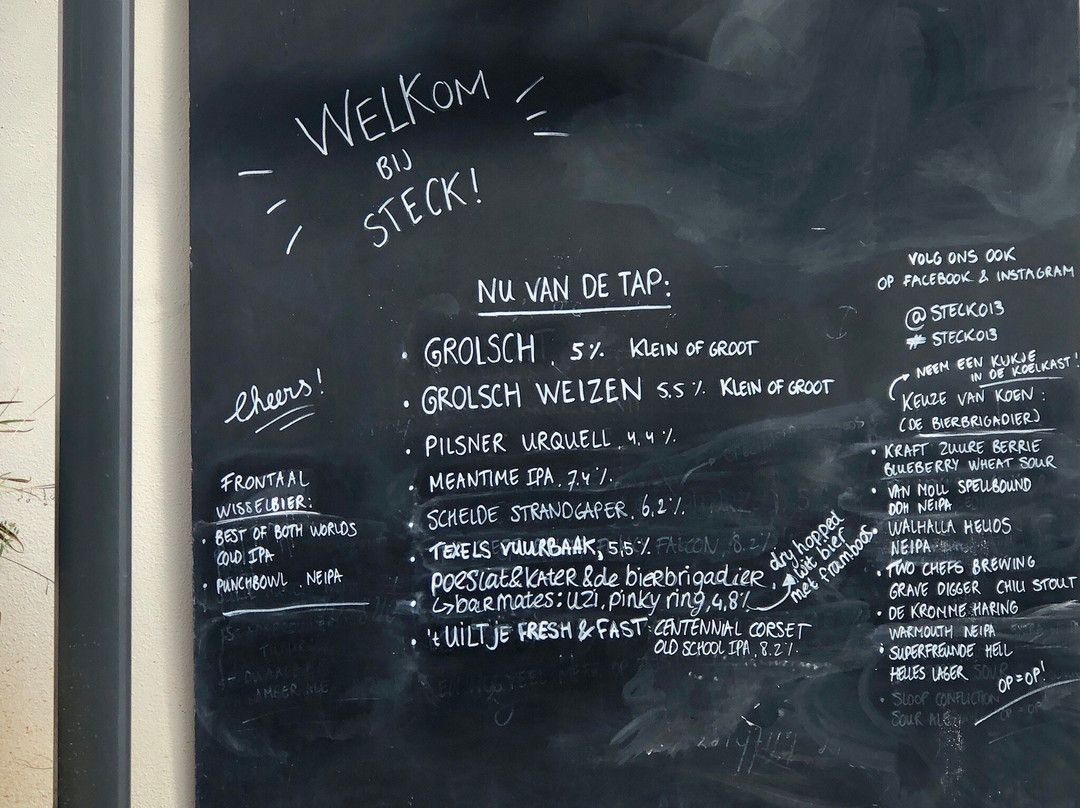 WELKOM
BIJ
STECK!
NU VAN DE TAP:
• GROLSCH, 5% KLEIN OF GROOT
• GROLSCH WEIZEN 5.5% KLEIN OF GROOT
• PILSNER URQUELL, 4,4%.
• MEANTIME IPA, 7.4%.
• SCHELDE STRANDGAPER, 6,2%.
• TEXELS VUURBAAK, 5,5%. FALCON, 8.2%
• poesiat & KATER & de bierbrigadier
↳ barmates: uzi, pinky ring, 4,8%
dry hopped
wit bier
met framboos
• 't UILTJE FRESH & FAST: CENTENNIAL CORSET
OLD SCHOOL IPA, 8.2%.
cheers!
FRONTAAL
WISSELBIER:
• BEST OF BOTH WORLDS
COLD IPA
• PUNCHBOWL NEIPA
AMBER ALE
VOLG ONS OOK
OP FACEBOOK & INSTAGRAM
@STECK013
# STECK013
NEEM EEN KIJKJE
IN DE KOELKAST!
KEUZE VAN KOEN:
(DE BIERBRIGADIER)
• KRAFT ZUURE BERRIE
BLUEBERRY WHEAT SOUR
• VAN MOLL SPELLBOUND
DDH NEIPA
• WALHALLA HELIOS
NEIPA
• TWO CHEFS BREWING
GRAVE DIGGER CHILI STOUT
• DE KROMME HARING
WARMOUTH NEIPA
• SUPERFREUNDE HELL
HELLES LAGER SOUR
OP=OP!
• SLOOP CONFLICTION
SOUR ALE OP=OP